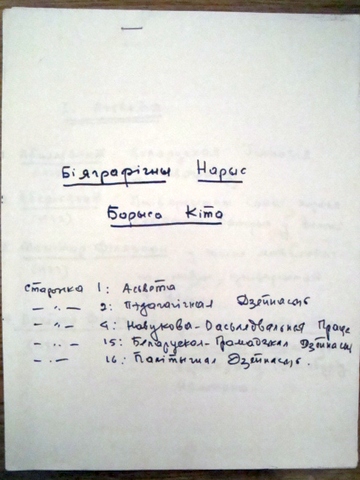 Біяграфічны Нарыс
Барыса Кіта
старонка 1: Асвета
— " — 2: Пэдагагічная Дзейнасць
— " — 4: Навукова-Дасьледвальная Праца
— " — 15: Беларуская-Грамадзкая Дзейнасць
— " — 16: Палітычная Дзейнасць.